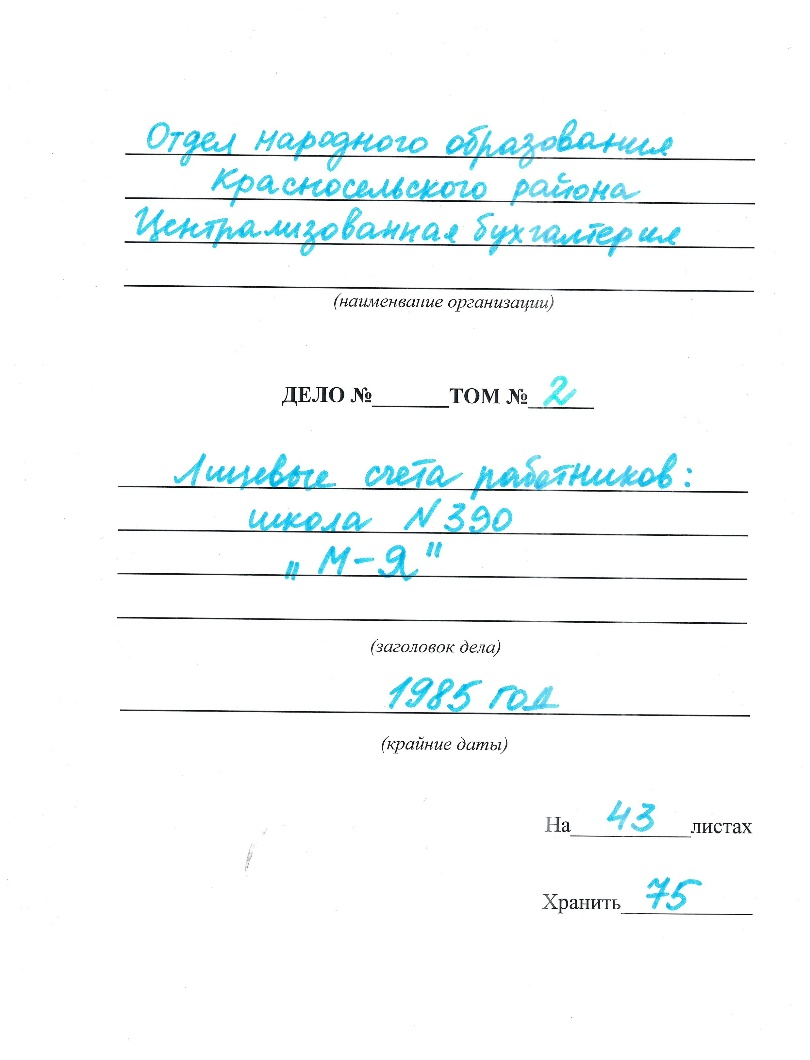 Отдел народного образования
Красносельского района
Централизованная бухгалтерия
(наименвание организации)
ДЕЛО №_______ТОМ № 2
Лицевые счета работников:
школа N 390
„М-Я"
(заголовок дела)
1985 год
(крайние даты)
На 43 листах
Хранить 75